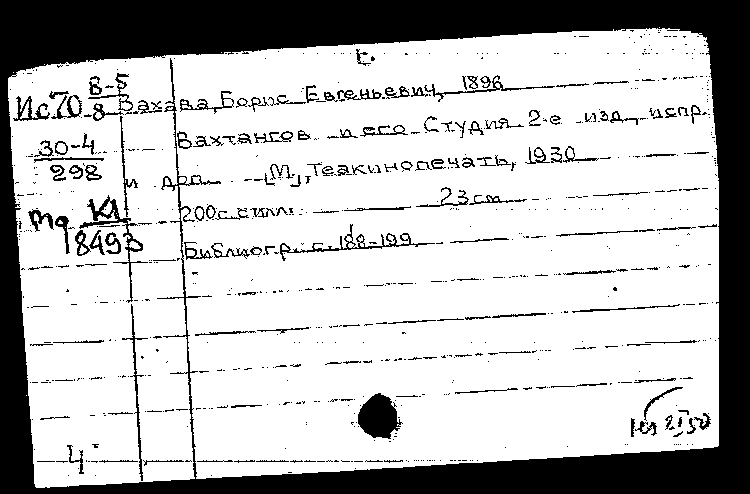 t.
Ис70 В-5/8 Вахава, Борис Евгеньевич, 1896
30-4/298 Вахтангов и его Студия 2-е изд., испр.
и доп. [М], Теакинопечать, 1930
200с. с илл. 23 см
Mq K1/18493
Библиогр. с. 188-199
4